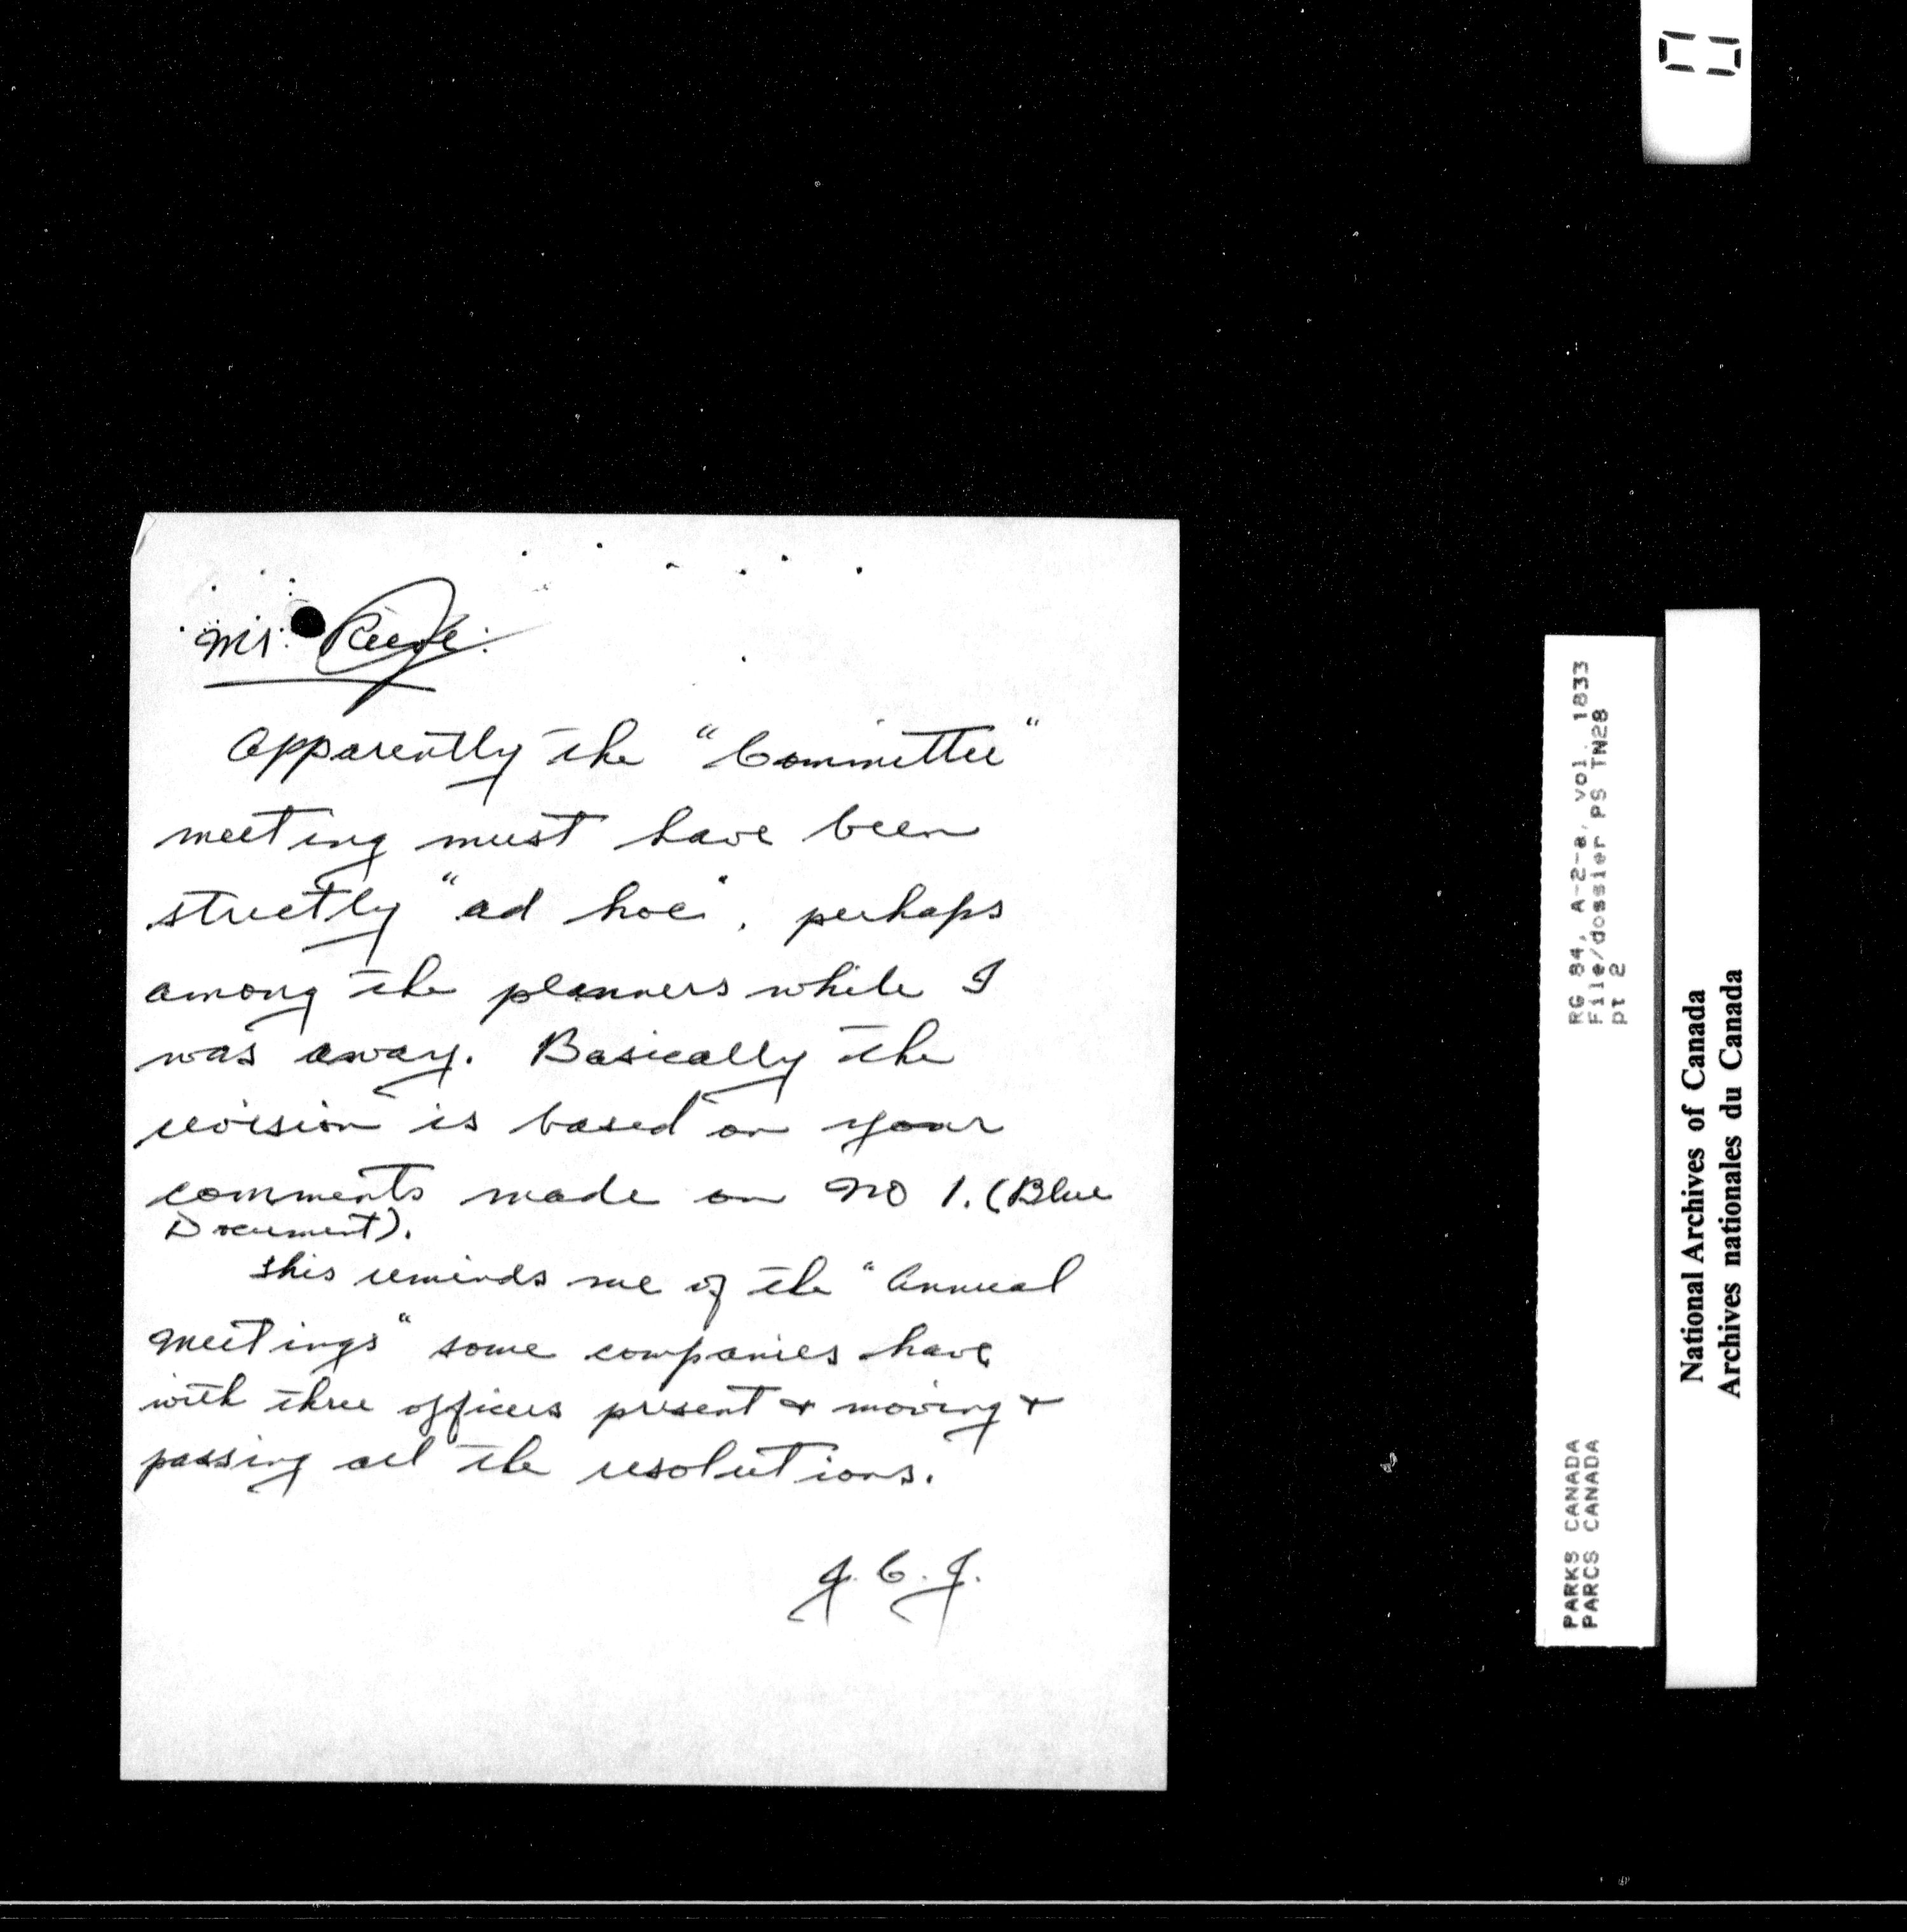 Mr. Reeve:
Apparently the "Committee"
meeting must have been
strictly "ad hoc", perhaps
among the planners while I
was away. Basically the
revision is based on your
comments made on No 1. (Blue
Document).
This reminds me of the "Annual
Meetings" some companies have
with three officers present & moving &
passing all the resolutions.
RG 84, A-2-a, vol. 1833
File/dossier PS TN28
pt 2
PARKS CANADA
PARCS CANADA
National Archives of Canada
Archives nationales du Canada